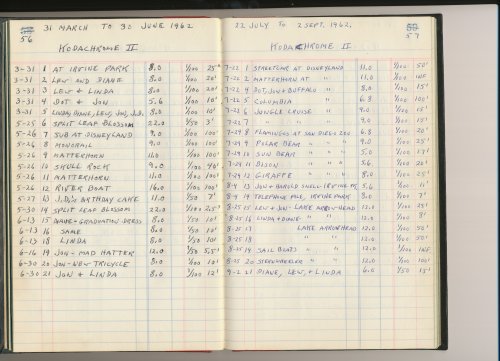 31 MARCH TO 30 JUNE 1962
56
KODACHROME II
3-31 1 AT IRVINE PARK 8.0 1/100 25'
3-31 2 LEW AND DIANE 8.0 1/100 20'
3-31 3 LEW & LINDA 8.0 1/100 20'
3-31 4 DOT & JON 5.6 1/100 10'
3-31 5 LINDA, DIANE, LEW, JON, 8.0 1/100 10'
5-26 6 SPLIT LEAF BLOSSOM 22.0 1/50 3'
5-26 7 SUB AT DISNEYLAND 9.0 1/100 100'
5-26 8 MONORAIL 9.0 1/100 100'
5-26 9 MATTERHORN 11.0 1/100 100'
5-26 10 SKULL ROCK 9.0 1/100 40'
5-26 11 MATTERHORN 11.0 1/100 100'
5-26 12 RIVER BOAT 16.0 1/100 100'
5-27 13 J.D.'S BIRTHDAY CAKE 11.0 1/50 7'
5-30 14 SPLIT LEAF BLOSSOM 22.0 1/100 2.5'
6-13 15 GRADUATION DRESS 8.0 1/50 10'
6-13 16 SAME 8.0 1/50 10'
6-13 18 LINDA 8.0 1/50 10'
6-16 19 JON-MAD HATTER 12.0 1/50 5.5'
6-30 20 JON-NEW TRICYCLE 8.0 1/100 15'
6-30 21 JON & LINDA 8.0 1/100 12'
22 JULY TO 2 SEPT. 1962.
57
KODACHROME II
7-22 1 STREETCAR AT DISNEYLAND 11.0 1/100 50'
7-22 2 MATTERHORN AT " 11.0 1/100 INF
7-22 4 DOT, JON & BUFFALO " 8.0 1/100 15'
7-22 5 COLUMBIA " 6.8 1/100 100'
7-22 6 JUNGLE CRUISE " 9.0 1/100 15'
7-22 7 " " " 9.0 1/100 15'
7-29 8 FLAMINGOS AT SAN DIEGO ZOO 6.8 1/100 20'
7-29 9 POLAR BEAR " 9.0 1/100 25'
7-29 10 SUN BEAR " 5.0 1/100 15'
7-29 11 BISON " 5.6 1/100 20'
7-29 12 GIRAFFE " 8.0 1/100 25'
8-4 13 JON & HAROLD SNELL-IRVINE PK 5.6 1/100 11'
8-4 14 TELEPHONE POLE, IRVINE PARK 8.0 1/100 7'
8-25 15 LEW & JON-LAKE ARROWHEAD 12.0 1/100 25'
8-25 16 LINDA & DIANE- " " 12.0 1/100 8'
8-25 17 LAKE ARROWHEAD 12.0 1/100 50'
8-25 18 " " 12.0 1/100 50'
8-25 19 SAIL BOATS " " 12.0 1/100 INF
8-25 20 STERNWHEELER " " 12.0 1/100 100'
9-2 21 DIANE, LEW, & LINDA 6.0 1/50 15'